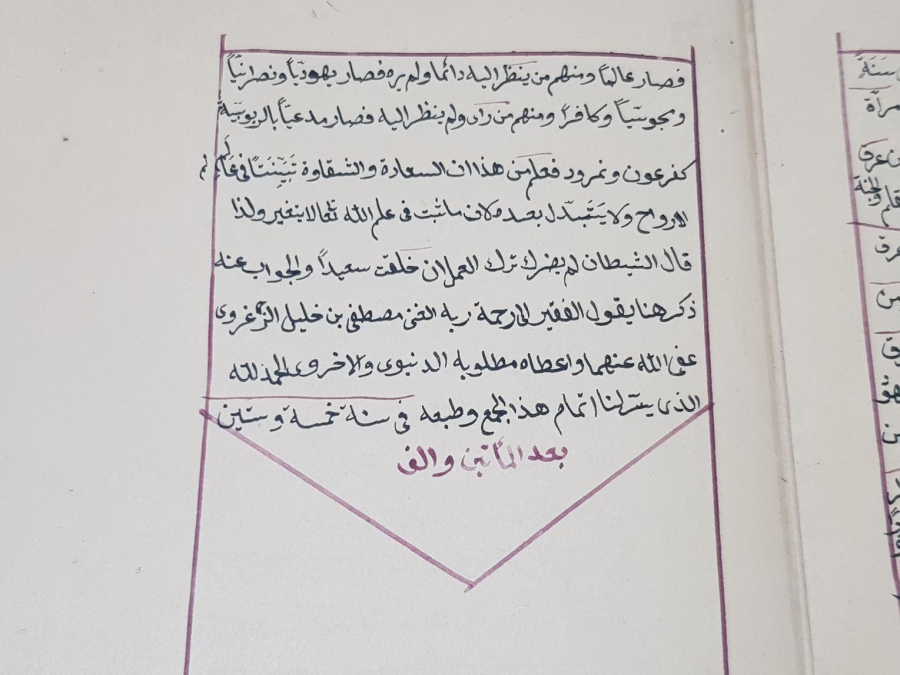 فصار عالماً ومنهم من ينظر اليه دائما ولم يره فصار يهوديّاً ونصرانيّاً
ومجوسيّاً وكافراً ومنهم من راى ولم ينظر اليه فصار مدعيّاً بالربوبيّة
كفرعون ونمرود فعلم من هذا ان السعادة والشقاوة تَبَيَّنَتَا فى عَالَم
الارواح ولا يَتَبَدّل بعده لان ما ثبت فى علم الله تعالا لا يتغير ولذا
قال الشيطان لم يضرك ترك العمل ان خلقت سعيداً والجواب عنه
ذكر هنا يقول الفقير الى رحمة ربه الغنى مصطفى بن خليل
عفى الله عنهما واعطاه مطلوبه الدنيوى والاخروى الحمد لله
الذى يسّر لنا اتمام هذا الجمع وطبعه فى سنة خمسة وستين
بعد المأتين والف
سَنَةً
مرأة
عرق
والجنة